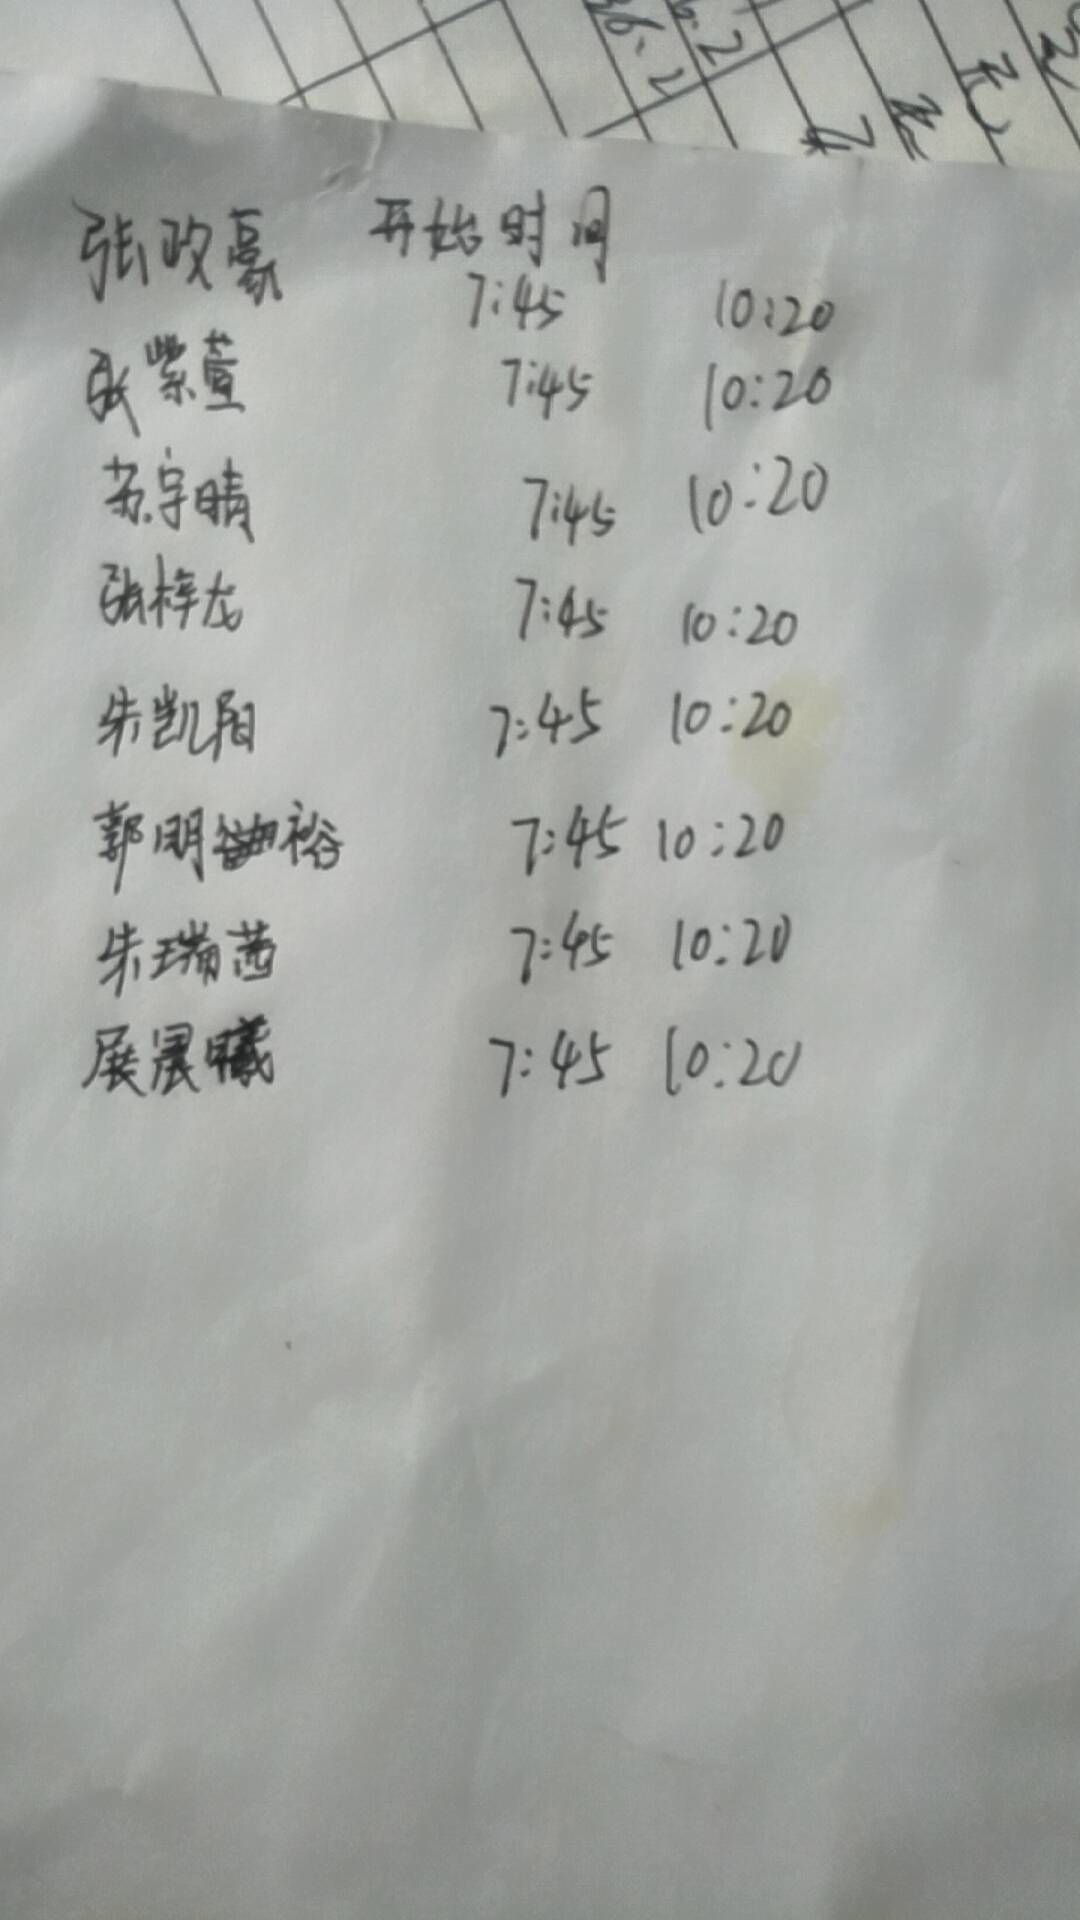 张政豪 开始时间
7:45 10:20
张紫萱 7:45 10:20
苏宇晴 7:45 10:20
张梓龙 7:45 10:20
朱凯阳 7:45 10:20
郭明裕 7:45 10:20
朱瑞茜 7:45 10:20
展晨曦 7:45 10:20